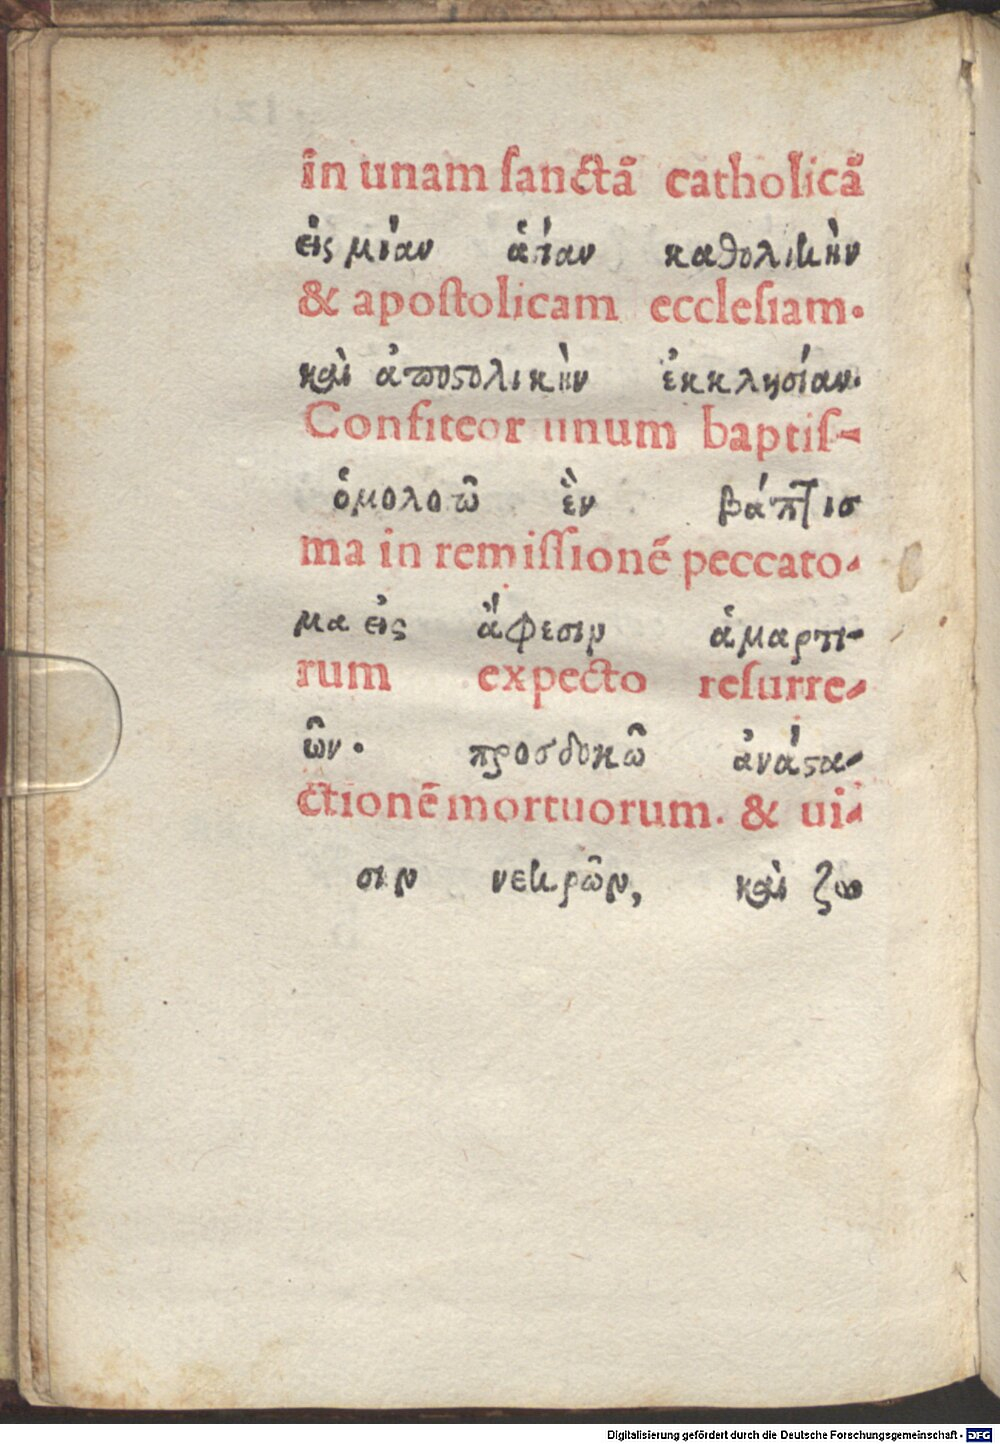 in unam ſanctã catholicã
εἰς μίαν ἁγίαν καθολικὴν
& apoſtolicam eccleſiam.
καὶ ἀποϛολικὴν ἐκκλησίαν.
Confiteor unum baptiſ-
ὁμολογῶ ἓν βάπτισ
ma in remiſſionẽ peccato-
μα εἰς ἄφεσιν ἁμαρτι-
rum expecto reſurre-
ῶν. προσδοκῶ ἀνάϛα-
ctionẽ mortuorum. & ui-
σιν νεκρῶν, καὶ ζω
Digitalisierung gefördert durch die Deutsche Forschungsgemeinschaft - DFG